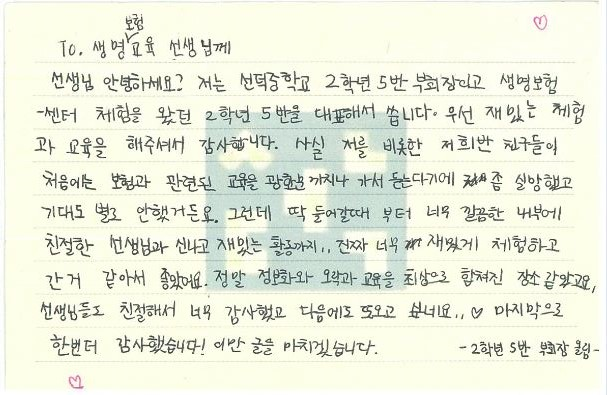 보험
TO. 생명∨교육 선생님께
선생님 안녕하세요? 저는 선덕중학교 2학년 5반 부회장이고 생명보험
-센터 체험을 왔던 2학년 5반을 대표해서 씁니다. 우선 재밌는 체험
과 교육을 해주셔서 감사합니다. 사실 저를 비롯한 저희반 친구들이
처음에는 보험과 관련된 교육을 광화문 까지나 가서 듣는다기에 좀 실망했고
기대도 별로 안했거든요. 그런데 딱 들어갈때 부터 너무 깔끔한 내부에
친절한 선생님과 신나고 재밌는 활동까지.. 진짜 너무 재밌게 체험하고
간 거 같아서 좋았어요. 정말 정보화와 오락과 교육을 최상으로 합쳐진 장소 같았고요,
선생님들도 친절해서 너무 감사했고 다음에도 또오고 싶네요.. ♡ 마지막으로
한번더 감사했습니다! 이만 글을 마치겠습니다. -2학년 5반 부회장 올림-